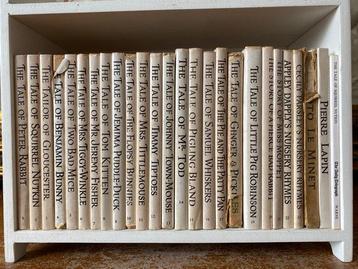 THE TALE OF PETER RABBIT
THE TALE OF SQUIRREL NUTKIN
THE TAILOR OF GLOUCESTER
TALE OF BENJAMIN BUNNY
THE TALE OF TWO BAD MICE
THE TALE OF MRS. TIGGY-WINKLE
THE TALE OF MR. JEREMY FISHER
THE TALE OF TOM KITTEN
THE TALE OF JEMIMA PUDDLE-DUCK
THE TALE OF THE FLOPSY BUNNIES
THE TALE OF MRS. TITTLEMOUSE
THE TALE OF TIMMY TIPTOES
THE TALE OF JOHNNY TOWN-MOUSE
THE TALE OF MR. TOD
THE TALE OF PIGLING BLAND
THE TALE OF SAMUEL WHISKERS
THE TALE OF THE PIE AND THE PATTY PAN
THE TALE OF GINGER & PICKLES
THE TALE OF LITTLE PIG ROBINSON
THE STORY OF A FIERCE BAD RABBIT
THE STORY OF MISS MOPPET
APPLEY DAPPLY'S NURSERY RHYMES
CECILY PARSLEY'S NURSERY RHYMES
TO LE MINET
PIERRE LAPIN